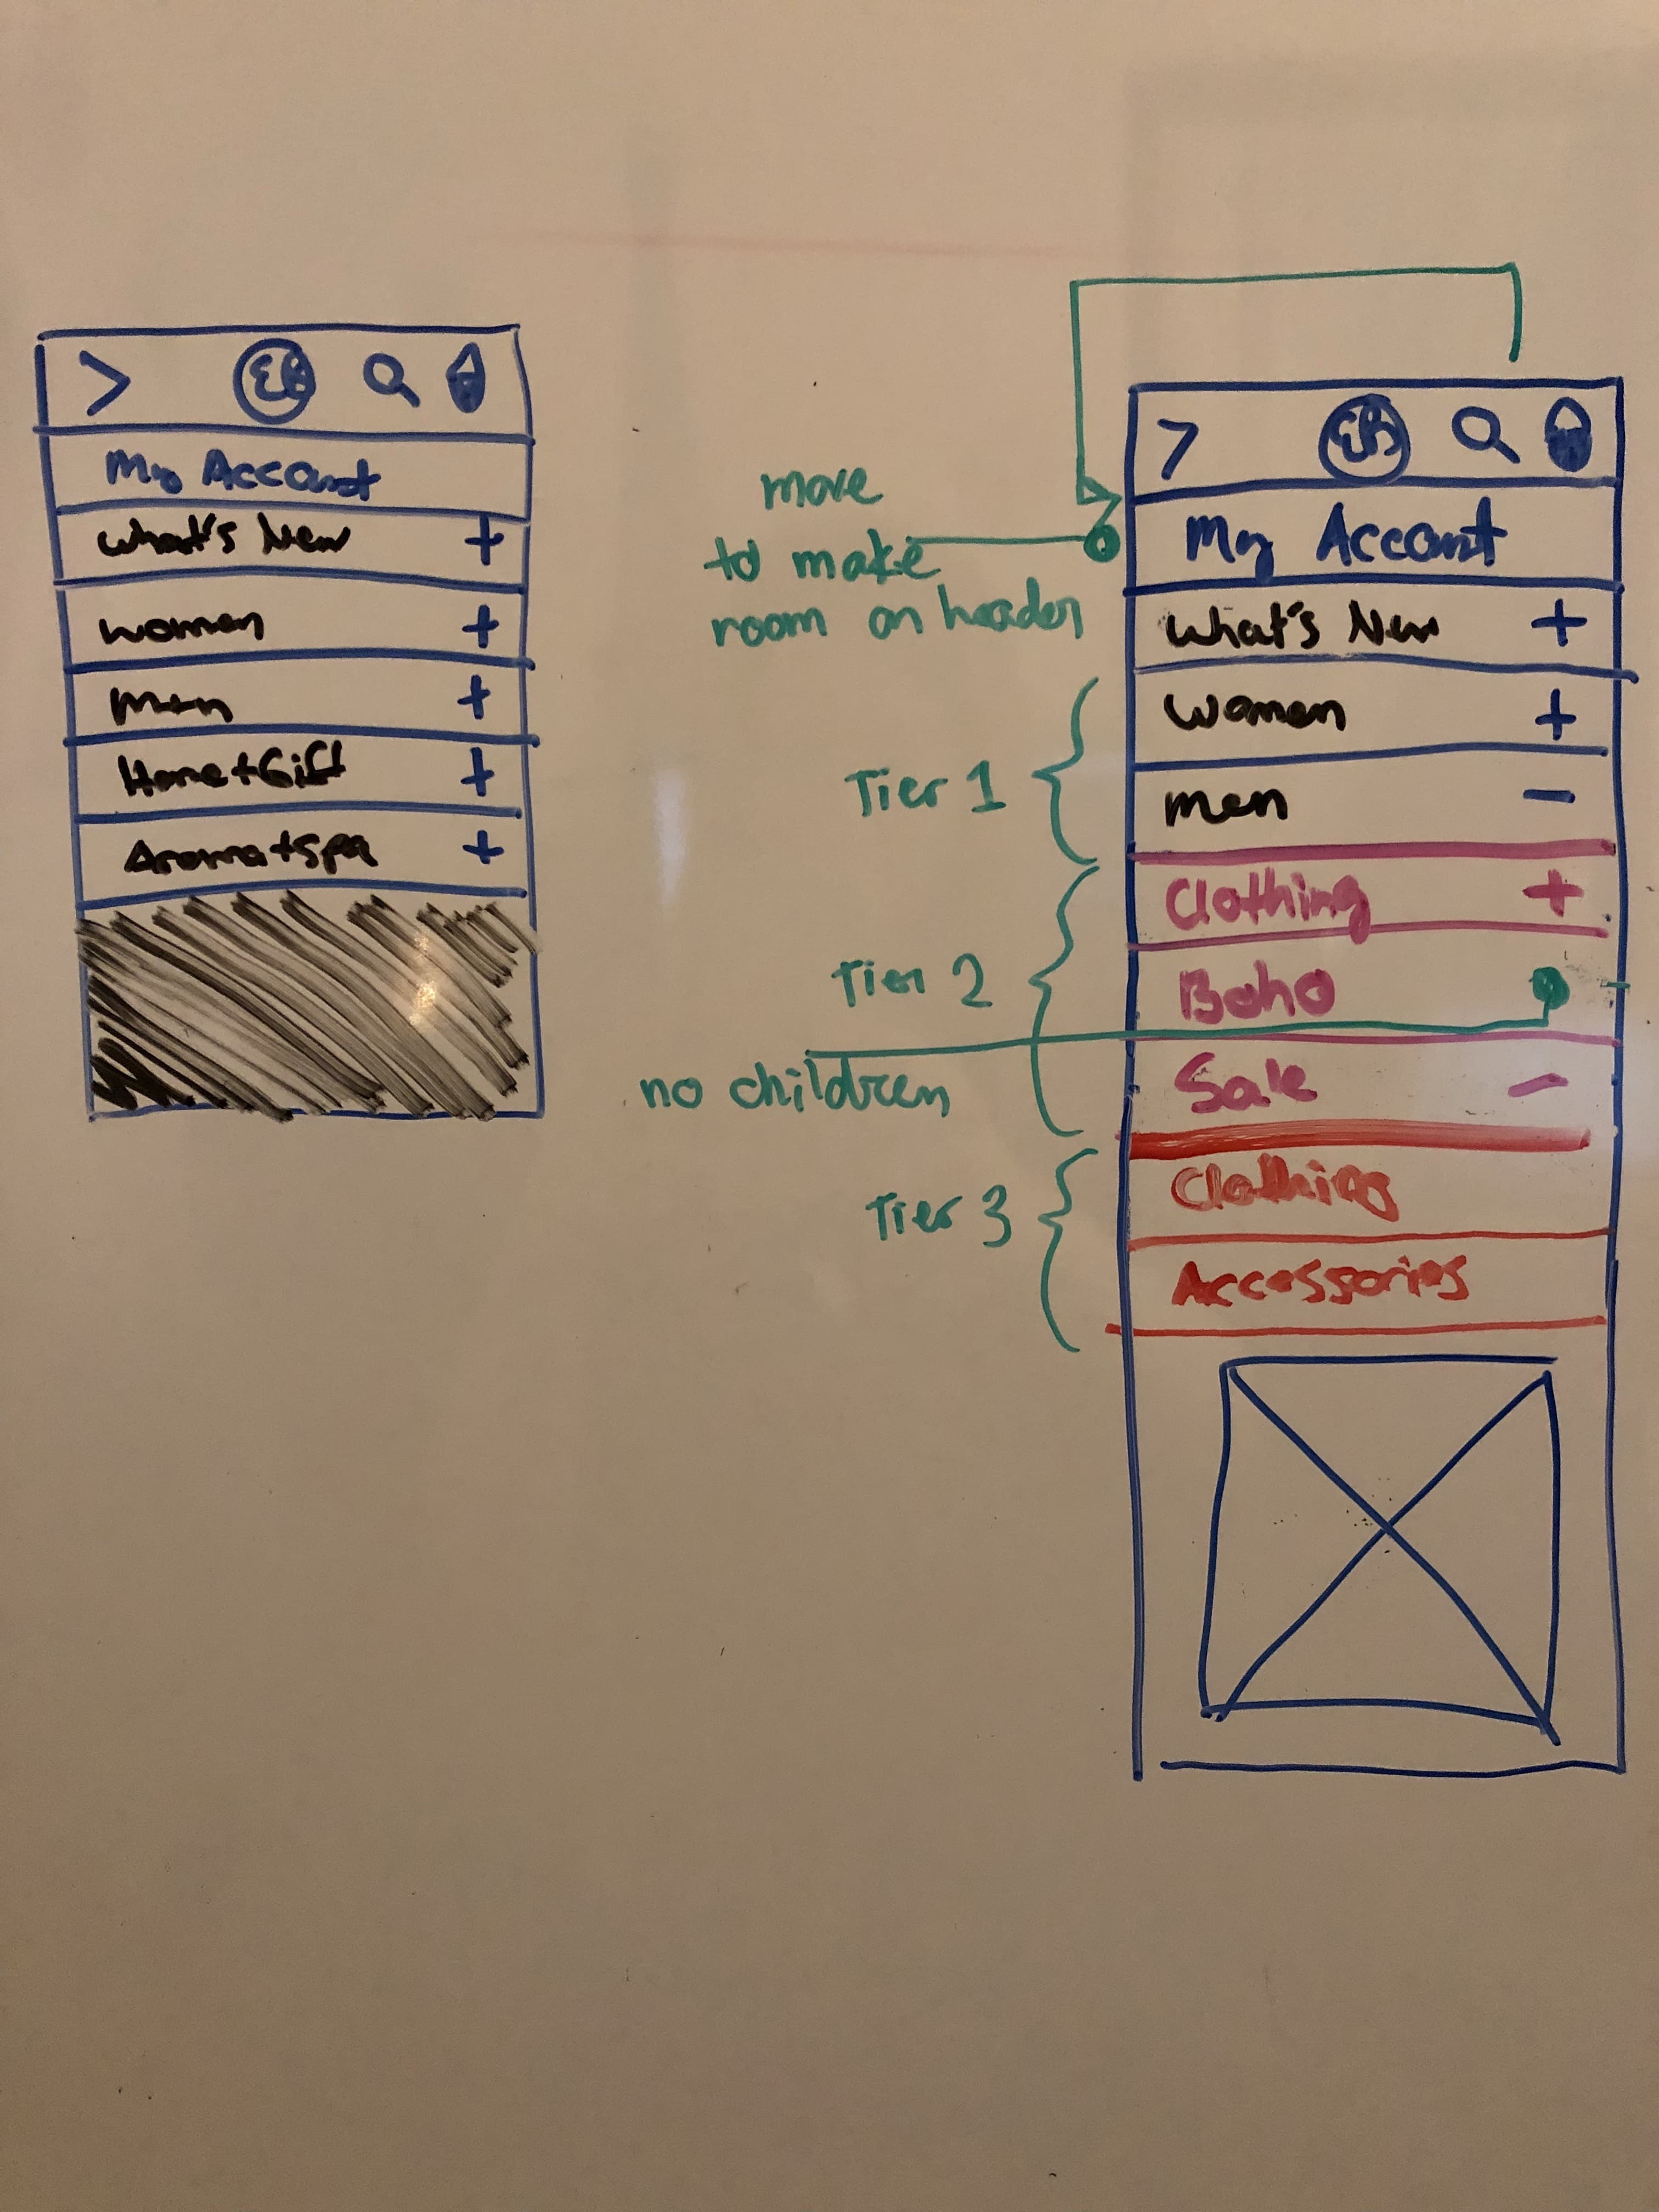 >
EB
My Account
What's New +
women +
men +
Home+Gift +
Aroma+Spa +
move
to make
room on header
Tier 1
Tier 2
no children
Tier 3
>
EB
My Account
What's New +
women +
men -
Clothing +
Boho
Sale -
Clothing
Accessories